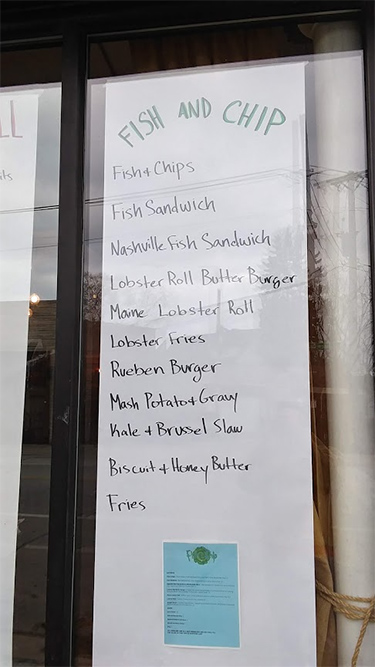 FISH AND CHIP
Fish & Chips
Fish Sandwich
Nashville Fish Sandwich
Lobster Roll Butter Burger
Maine Lobster Roll
Lobster Fries
Rueben Burger
Mash Potato & Gravy
Kale & Brussel Slaw
Biscuit & Honey Butter
Fries